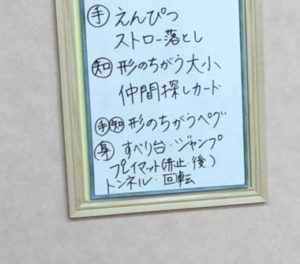 ㊙手 えんぴつ
ストロー落とし
知 形のちがう大小
仲間探しカード
手知 形のちがうペグ
身 すべり台・ジャンプ
プレイマット(赤止・後)
トンネル・回転